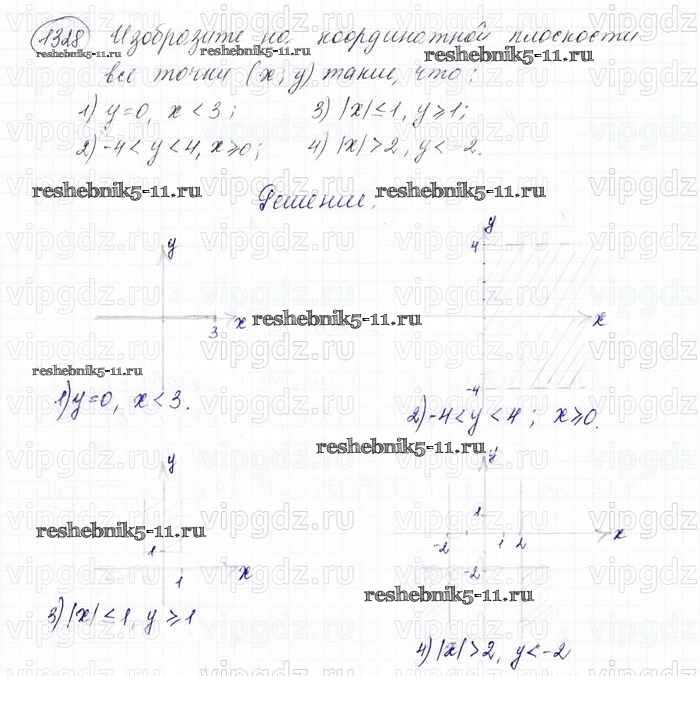 1328 Изобразите на координатной плоскости
все точки (x; y) такие, что:
1) y=0, x<3; 3) |x|≤1, y≥1;
2) -4<y<4, x≥0; 4) |x|>2, y<-2.
Решение.
y
x
3
1) y=0, x<3.
y
4
x
-4
2) -4<y<4; x≥0.
y
1
1
x
3) |x|≤1, y≥1
y
1
-2
1
2
x
-2
4) |x|>2, y<-2
reshebnik5-11.ru
reshebnik5-11.ru
reshebnik5-11.ru
reshebnik5-11.ru
reshebnik5-11.ru
reshebnik5-11.ru
reshebnik5-11.ru
reshebnik5-11.ru
reshebnik5-11.ru
reshebnik5-11.ru
vipgdz.ru